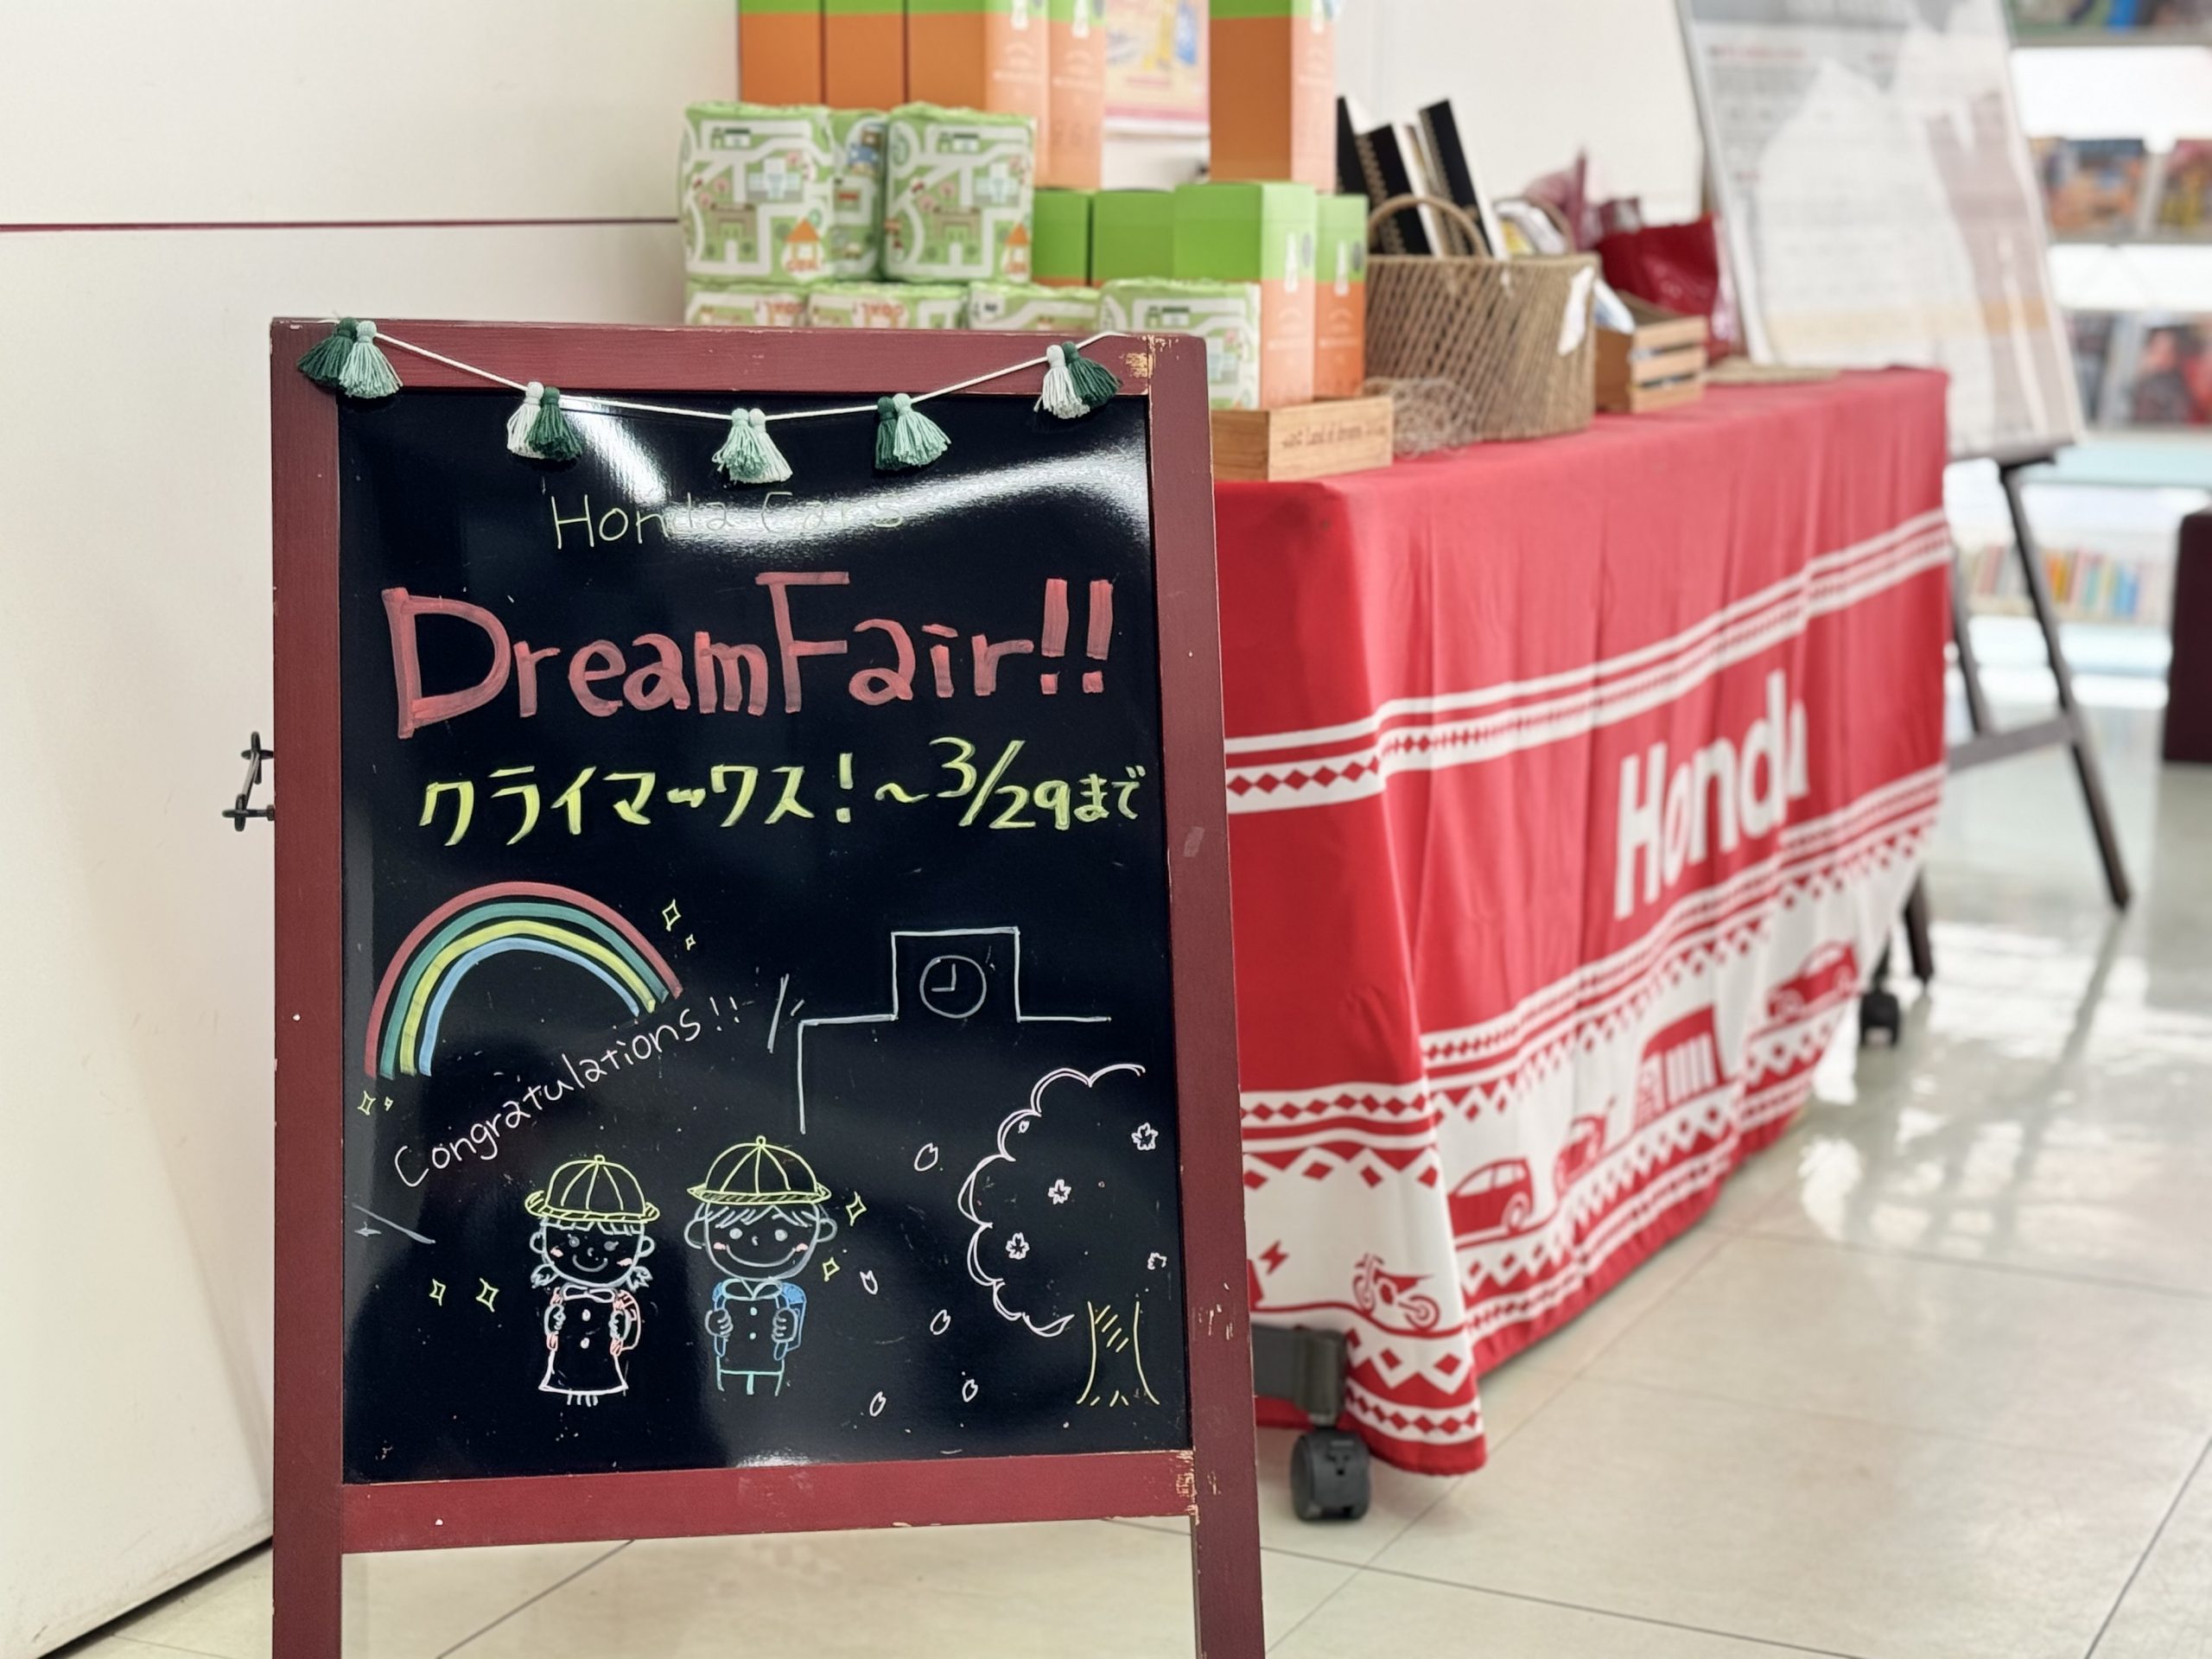 Honda Cars
DreamFair!!
クライマックス!〜3/29まで
Congratulations!!
Honda